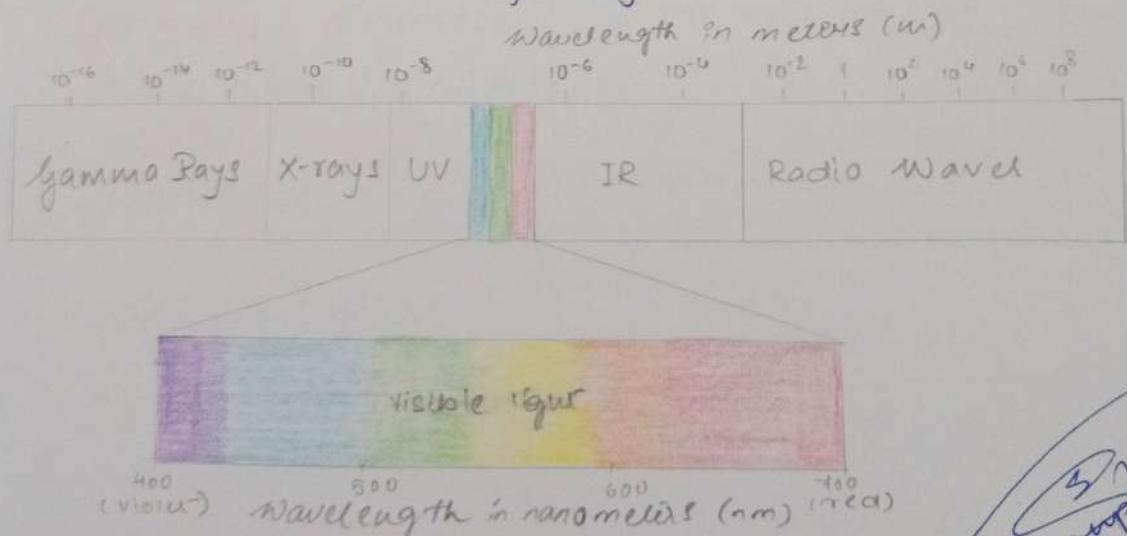 Wavelength in meters (m)
10⁻¹⁶ 10⁻¹⁴ 10⁻¹² 10⁻¹⁰ 10⁻⁸ 10⁻⁶ 10⁻⁴ 10⁻² 1 10² 10⁴ 10⁶ 10⁸
Gamma Rays X-rays UV IR Radio Waves
visible light
400 500 600 700
(violet) Wavelength in nanometers (nm) (red)